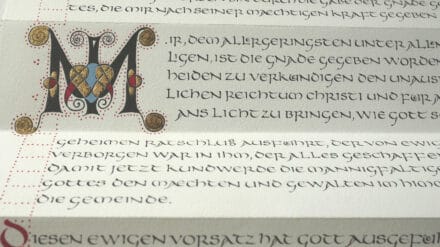 durch die Gabe der Gnade G
tes, die mir nach seiner maechtigen Kraft gegeben
Mir, dem allergeringsten unter allen
ligen, ist die Gnade gegeben worden
Heiden zu verkündigen den unaus
lichen Reichtum Christi und für a
ans Licht zu bringen, wie Gott s
geheimen Ratschluß ausführt, der von ewig
verborgen war in ihm, der alles geschaffe
damit jetzt kundwerde die mannigfaltig
Gottes den Maechten und Gewalten im Himm
die Gemeinde.
Diesen ewigen Vorsatz hat Gott ausgefüh